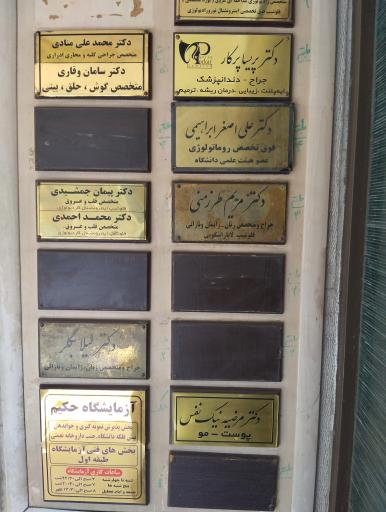 دکتر محمد علی منادی
متخصص جراحی کلیه و مجاری ادراری
دکتر سامان وقاری
متخصص گوش ، حلق ، بینی
دکتر پریسا پرکار
جراح - دندانپزشک
ایمپلنت ، زیبایی ، درمان ریشه ، ترمیم
دکتر علی اصغر ابراهیمی
فوق تخصص روماتولوژی
عضو هیئت علمی دانشگاه
دکتر پیمان جمشیدی
متخصص قلب و عروق
دکتر محمد احمدی
متخصص قلب و عروق
دکتر مریم طرزمنی
جراح و متخصص زنان ، زایمان و نازائی
فلوشیپ لاپاراسکوپی
دکتر لیلا
جراح و متخصص زنان ، زایمان و نازائی
آزمایشگاه حکیم
بخش پذیرش نمونه گیری و جوابدهی
نبش فلکه دانشگاه ، جنب داروخانه نعمتی
بخش های فنی آزمایشگاه
طبقه اول
ساعات کاری آزمایشگاه
دکتر مرضیه نیک نفس
پوست - مو